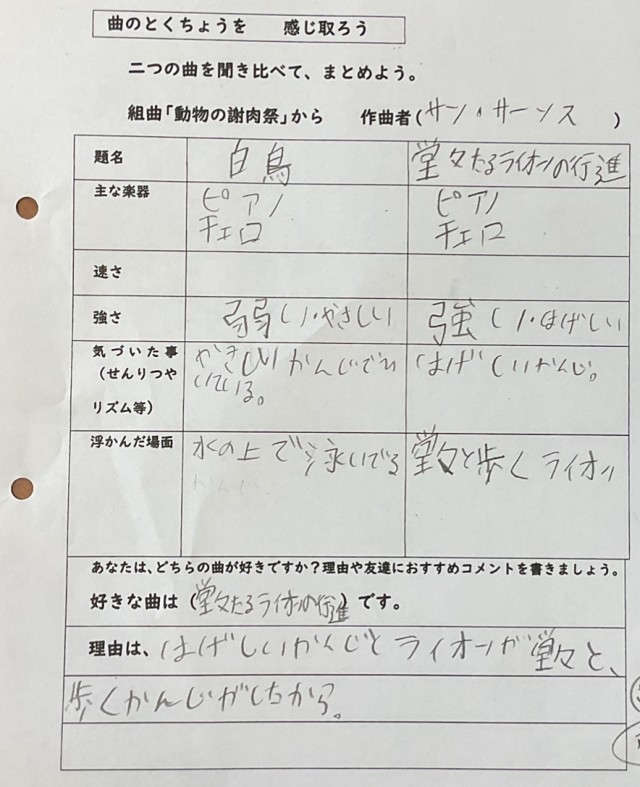 曲のとくちょうを　感じ取ろう
二つの曲を聞き比べて、まとめよう。
組曲「動物の謝肉祭」から　作曲者(サン・サーンス　)
題名　白鳥　堂々たるライオンの行進
主な楽器　ピアノ　ピアノ
チェロ　チェロ
速さ
強さ　弱い・やさしい　強い・はげしい
気づいた事　やさしいかんじで　はげしいかんじ。
（せんりつや　いている。
リズム等）
浮かんだ場面　水の上で泳いでる　堂々と歩くライオン
あなたは、どちらの曲が好きですか？理由や友達におすすめコメントを書きましょう。
好きな曲は（堂々たるライオンの行進）です。
理由は、はげしいかんじとライオンが堂々と、
歩くかんじがしたから。